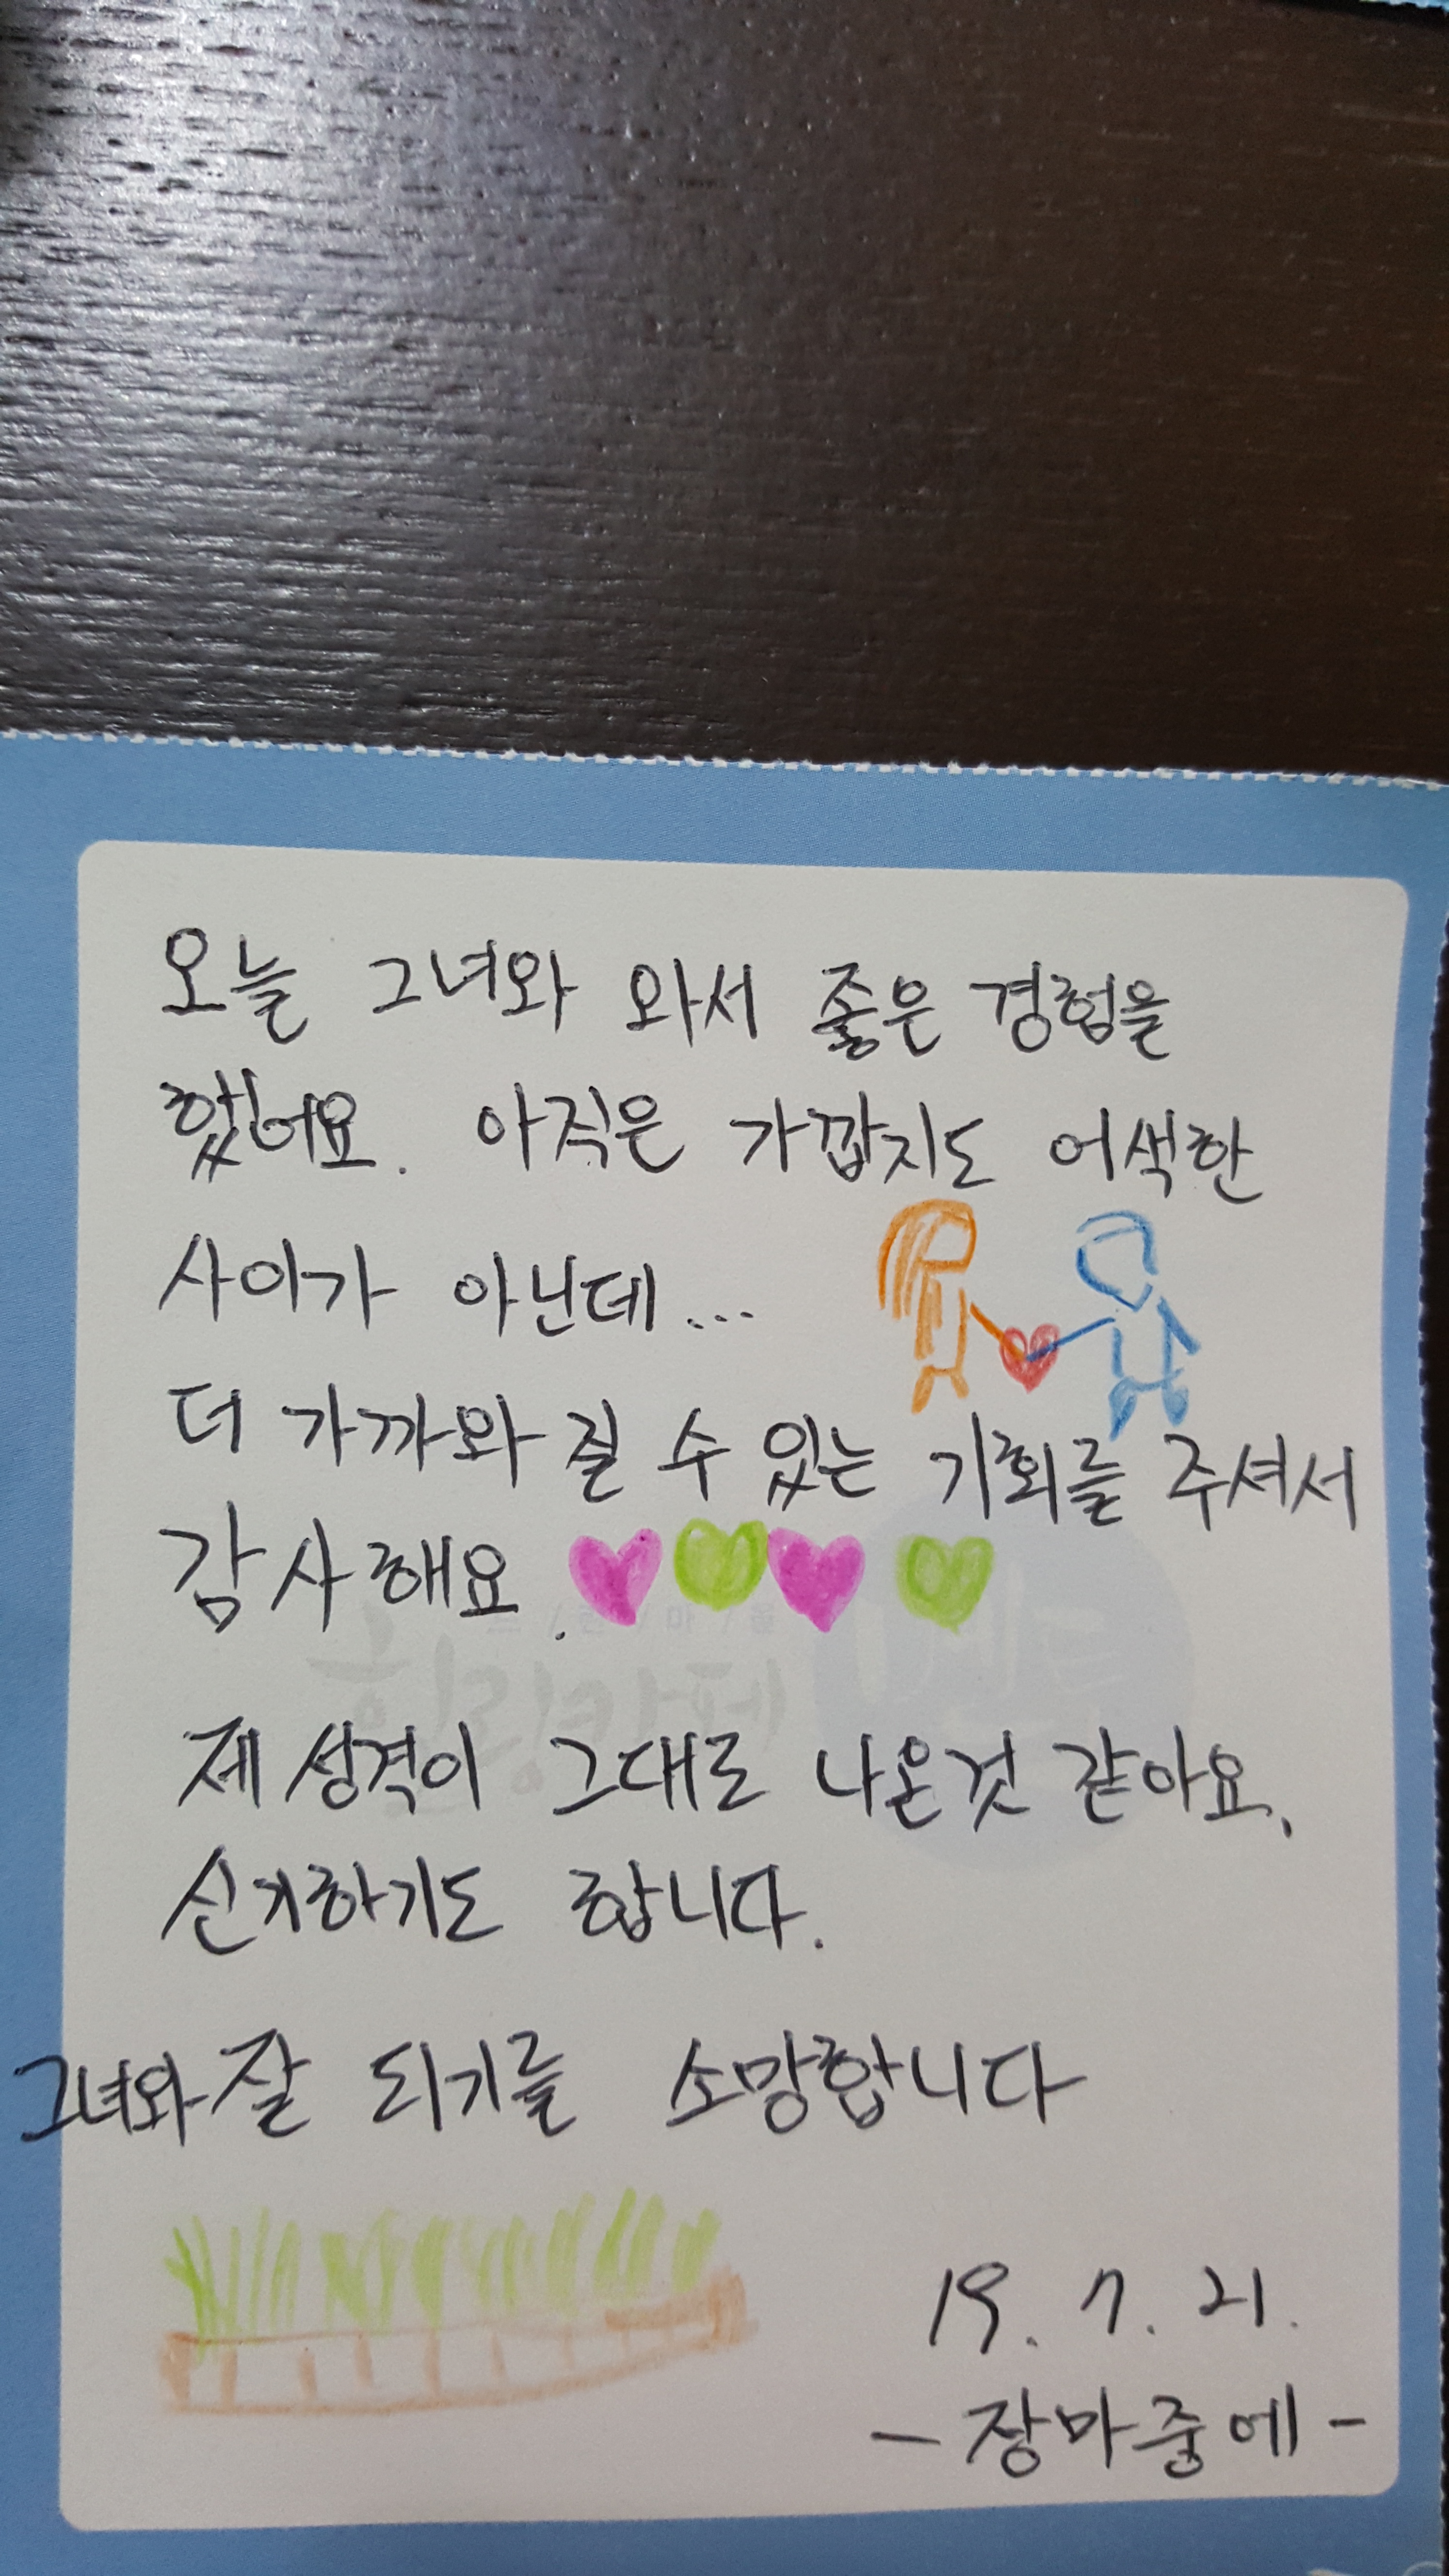 오늘 그녀와 와서 좋은 경험을
했어요. 아직은 가깝지도 어색한
사이가 아닌데...
더 가까와 질 수 있는 기회를 주셔서
감사해요.
제 성격이 그대로 나온것 같아요.
신기하기도 합니다.
그녀와 잘 되기를 소망합니다
19. 7. 21.
- 장마중에 -